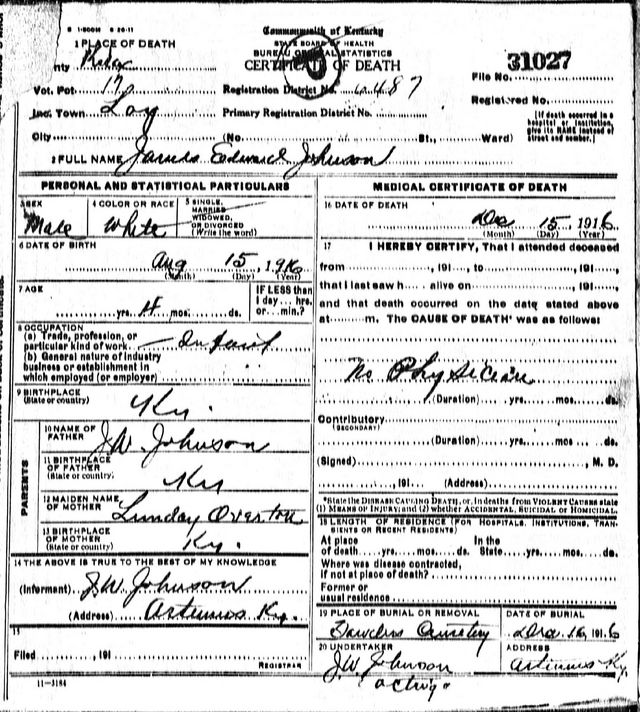 Commonwealth of Kentucky
STATE BOARD OF HEALTH
BUREAU OF VITAL STATISTICS
CERTIFICATE OF DEATH
1 PLACE OF DEATH
County Knox
Vot. Pct 17
Registration District No. 6487
File No. 31027
Inc. Town Loy
Primary Registration District No.
Registered No.
City (No. St., Ward)
[If death occurred in a hospital or institution, give its NAME instead of street and number.]
2 FULL NAME James Edward Johnson
PERSONAL AND STATISTICAL PARTICULARS
3 SEX
Male
4 COLOR OR RACE
White
5 SINGLE,
MARRIED
WIDOWED,
OR DIVORCED
(Write the word)
6 DATE OF BIRTH
Aug 15, 1916
(Month) (Day) (Year)
7 AGE
yrs. 4 mos. ds.
IF LESS than
1 day... hrs.
or... min.?
8 OCCUPATION
(a) Trade, profession, or
particular kind of work Infant
(b) General nature of industry
business or establishment in
which employed (or employer)
9 BIRTHPLACE
(State or country)
Ky.
PARENTS
10 NAME OF
FATHER
J.W. Johnson
11 BIRTHPLACE
OF FATHER
(State or country)
Ky
12 MAIDEN NAME
OF MOTHER
Lunday Overton
13 BIRTHPLACE
OF MOTHER
(State or country)
Ky.
14 THE ABOVE IS TRUE TO THE BEST OF MY KNOWLEDGE
(Informant) J.W. Johnson
(Address) Artemus Ky.
15
Filed, 191
REGISTRAR
11-3184
MEDICAL CERTIFICATE OF DEATH
16 DATE OF DEATH
Dec 15, 1916
(Month) (Day) (Year)
17 I HEREBY CERTIFY, That I attended deceased
from, 191, to, 191,
that I last saw h alive on, 191,
and that death occurred on the date stated above
at m. The CAUSE OF DEATH* was as follows:
No Physician
(Duration) yrs. mos. ds.
Contributory
(SECONDARY)
(Duration) yrs. mos. ds.
(Signed), M. D.
, 191 (Address)
*State the DISEASE CAUSING DEATH, or, in deaths from VIOLENT CAUSES state
(1) MEANS OF INJURY; and (2) whether ACCIDENTAL, SUICIDAL or HOMICIDAL.
18 LENGTH OF RESIDENCE (FOR HOSPITALS, INSTITUTIONS, TRANSIENTS OR RECENT RESIDENTS)
At place In the
of death yrs. mos. ds. State yrs. mos. ds.
Where was disease contracted,
if not at place of death?
Former or
usual residence
19 PLACE OF BURIAL OR REMOVAL
Cemetery
DATE OF BURIAL
Dec. 16, 1916
20 UNDERTAKER
J.W. Johnson
acting
ADDRESS
Artemus Ky.